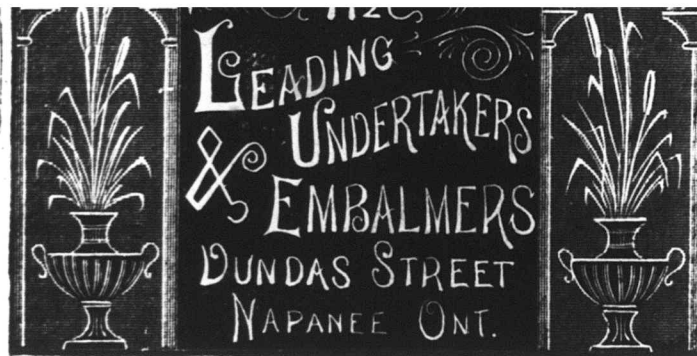 LEADING
UNDERTAKERS
& EMBALMERS
DUNDAS STREET
NAPANEE ONT.